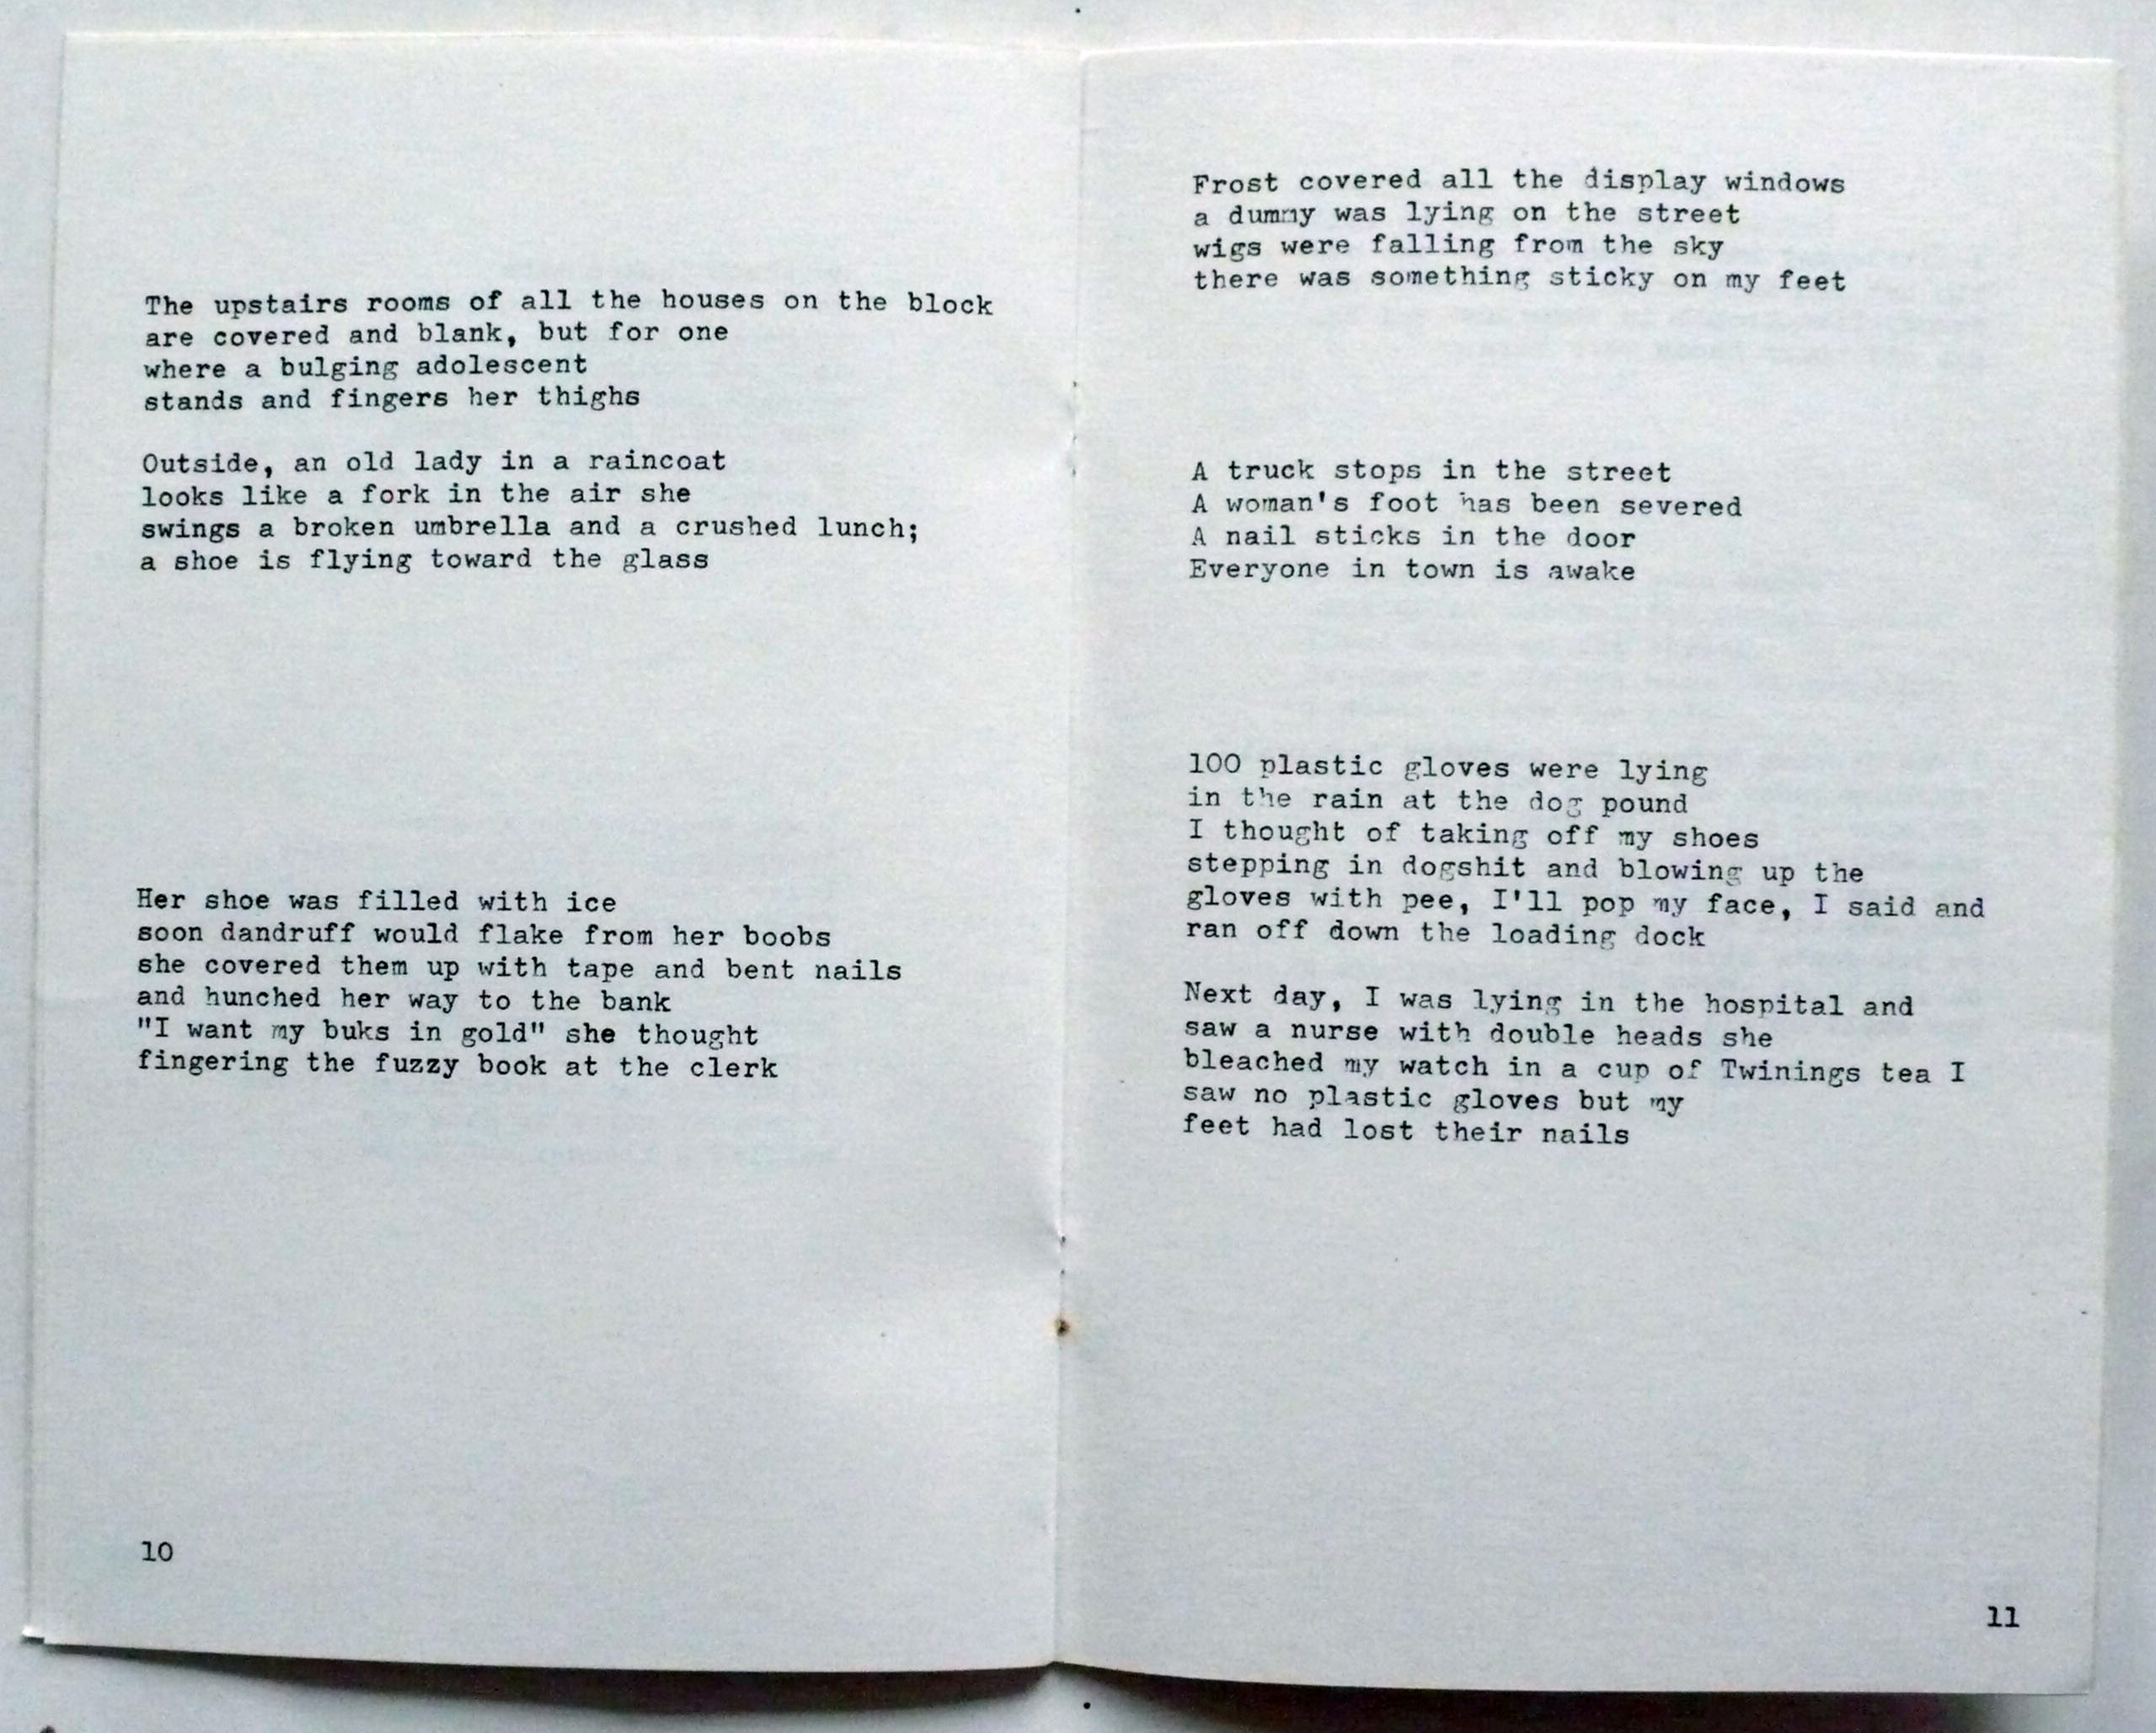 The upstairs rooms of all the houses on the block
are covered and blank, but for one
where a bulging adolescent
stands and fingers her thighs
Outside, an old lady in a raincoat
looks like a fork in the air she
swings a broken umbrella and a crushed lunch;
a shoe is flying toward the glass
Her shoe was filled with ice
soon dandruff would flake from her boobs
she covered them up with tape and bent nails
and hunched her way to the bank
"I want my buks in gold" she thought
fingering the fuzzy book at the clerk
10
Frost covered all the display windows
a dummy was lying on the street
wigs were falling from the sky
there was something sticky on my feet
A truck stops in the street
A woman's foot has been severed
A nail sticks in the door
Everyone in town is awake
100 plastic gloves were lying
in the rain at the dog pound
I thought of taking off my shoes
stepping in dogshit and blowing up the
gloves with pee, I'll pop my face, I said and
ran off down the loading dock
Next day, I was lying in the hospital and
saw a nurse with double heads she
bleached my watch in a cup of Twinings tea I
saw no plastic gloves but my
feet had lost their nails
11